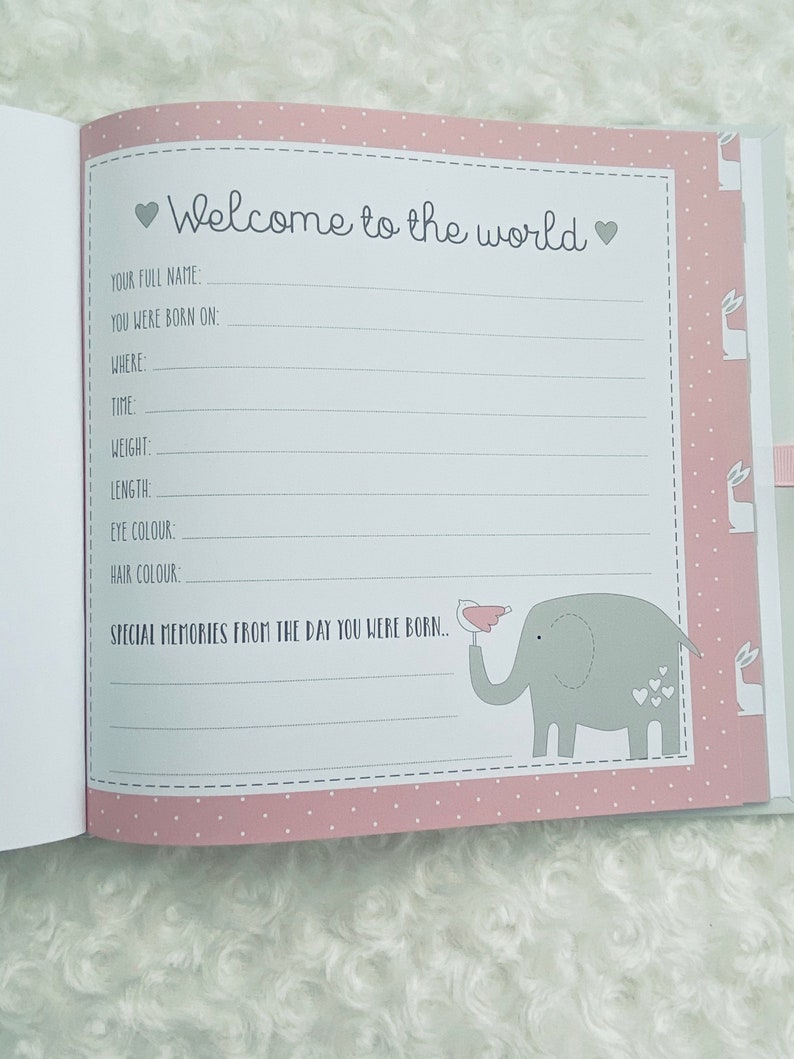 Welcome to the world
YOUR FULL NAME:
YOU WERE BORN ON:
WHERE:
TIME:
WEIGHT:
LENGTH:
EYE COLOUR:
HAIR COLOUR:
SPECIAL MEMORIES FROM THE DAY YOU WERE BORN..